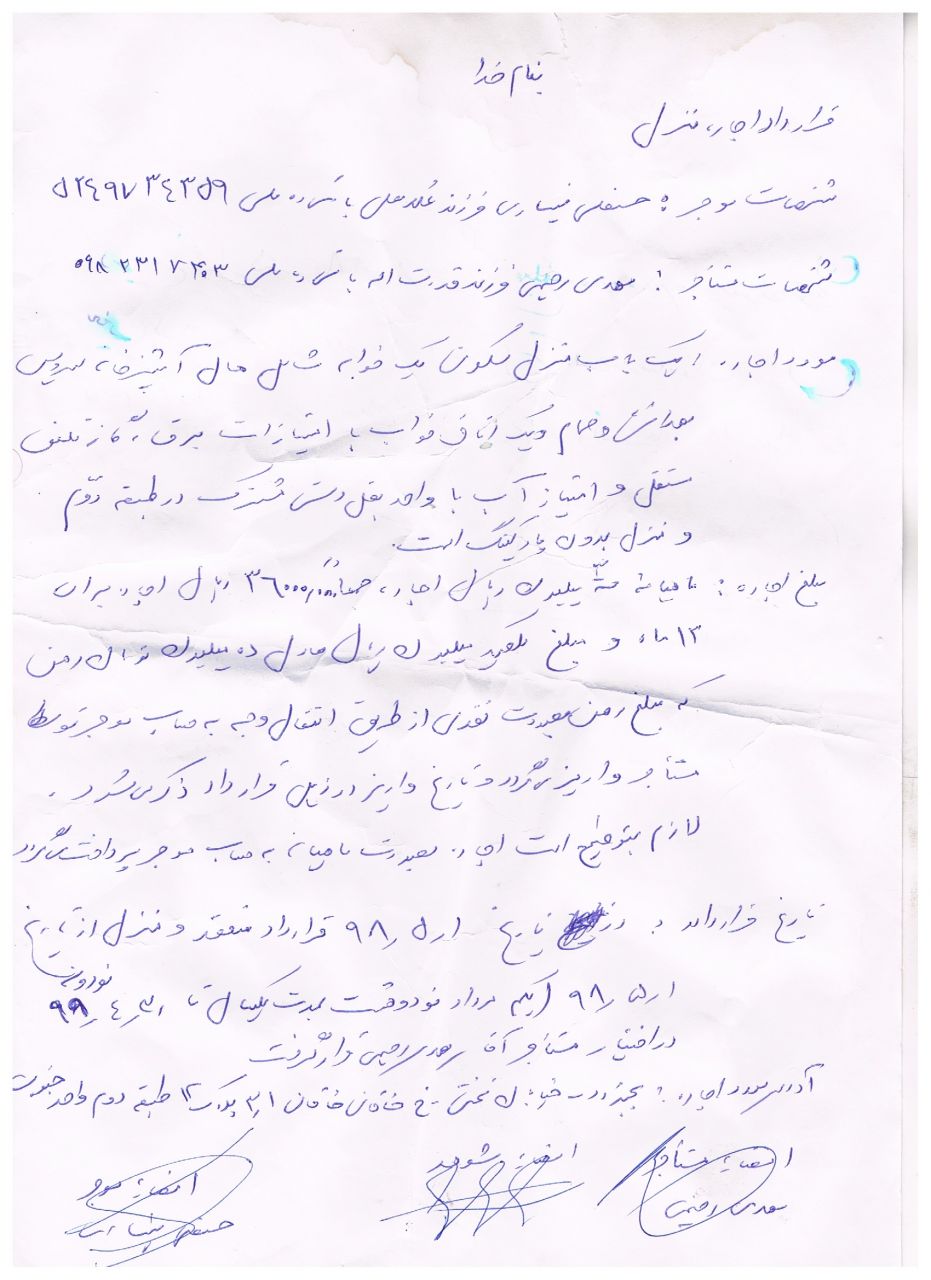 بنام خدا
قرارداد اجاره منزل
مشخصات موجر : حسنعلی فرزند با شماره ملی ۵۲۴۹۷۳۴۳۵۹
مشخصات مستاجر : مهدی رحیمی فرزند قدرت اله با شماره ملی
مورد اجاره : یک باب منزل مسکونی یک خوابه شامل هال آشپزخانه سرویس
بهداشتی و حمام و یک اتاق خواب با امتیازات برق ، گاز تلفن
مستقل و امتیاز آب با واحد بغل دستی مشترک در طبقه دوّم
و منزل بدون پارکینگ است.
مبلغ اجاره : ماهیانه میلیون ریال اجاره جمعاً ریال اجاره برای
۱۳ ماه و مبلغ یکصد میلیون ریال معادل ده میلیون تومان رهن
که مبلغ رهن بصورت نقدی از طریق انتقال وجه به حساب موجر توسط
مستأجر واریز می گردد و تاریخ واریز در ذیل قرارداد ذکر می شود .
لازم بتوضیح است اجاره بصورت ماهیانه به حساب موجر پرداخت می گردد
تاریخ قرارداد : در تاریخ ۹۸٫۵٫۱ قرارداد منعقد و منزل از تاریخ
۹۸٫۵٫۱ (یکم مرداد نود و هشت بمدت یکسال تا ۹۹٫۴٫۳۱ نود و نه
در اختیار مستاجر آقای مهدی رحیمی قرار گرفت
آدرس مورد اجاره : خ خاقانی خاقانی ۳٫۱ پلاک ۱۲ طبقه دوم واحد جنوبی
امضاء مستأجر
مهدی رحیمی
امضاء شهود
امضاء موجر
حسنعلی